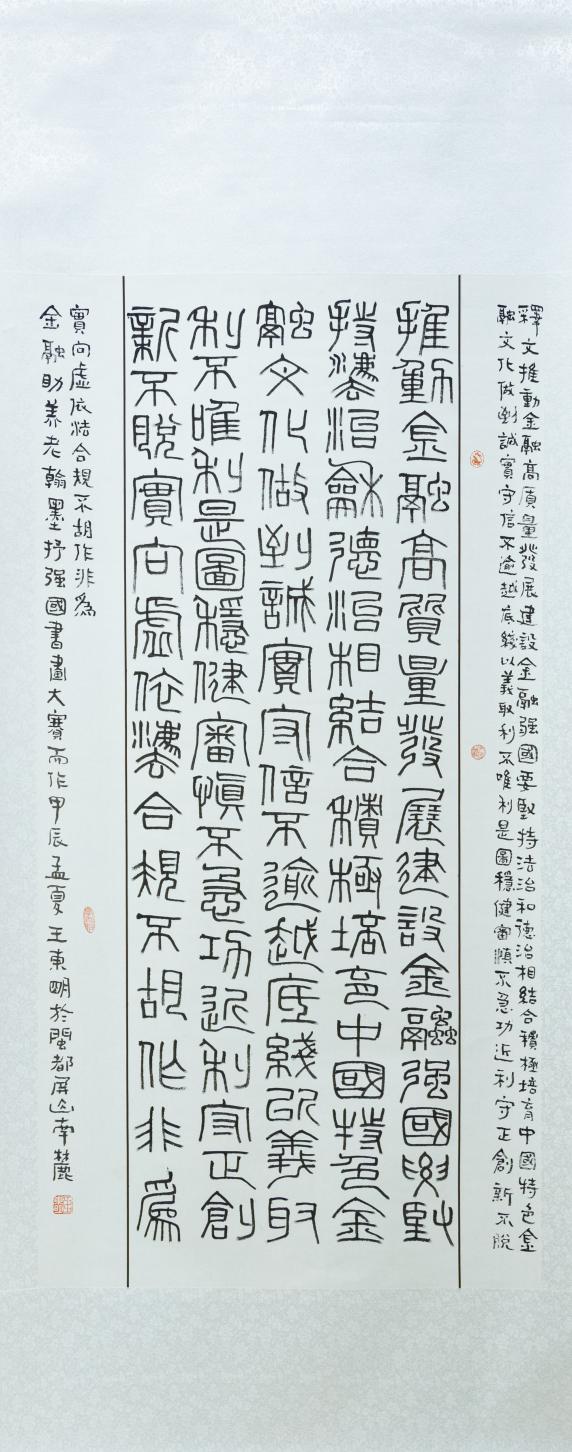 釋文推動金融高質量發展建設金融强國要堅持法治和德治相結合積極培育中國特色金
融文化做到誠實守信不逾越底綫以義取利不唯利是圖穩健審慎不急功近利守正創新不脫
推動金融高質量發展建設金融强國要堅
持灋治龢德治相結合積極培育中國特色金
融文化做到誠實守信不逾越底綫以義取
利不唯利是圖穩健審慎不急功近利守正創
新不脫實向虛依灋合規不胡作非爲
實向虛依法合規不胡作非爲
金融助養老翰墨抒强國書畫大賽而作甲辰孟夏王東明於閩都屏山南麓